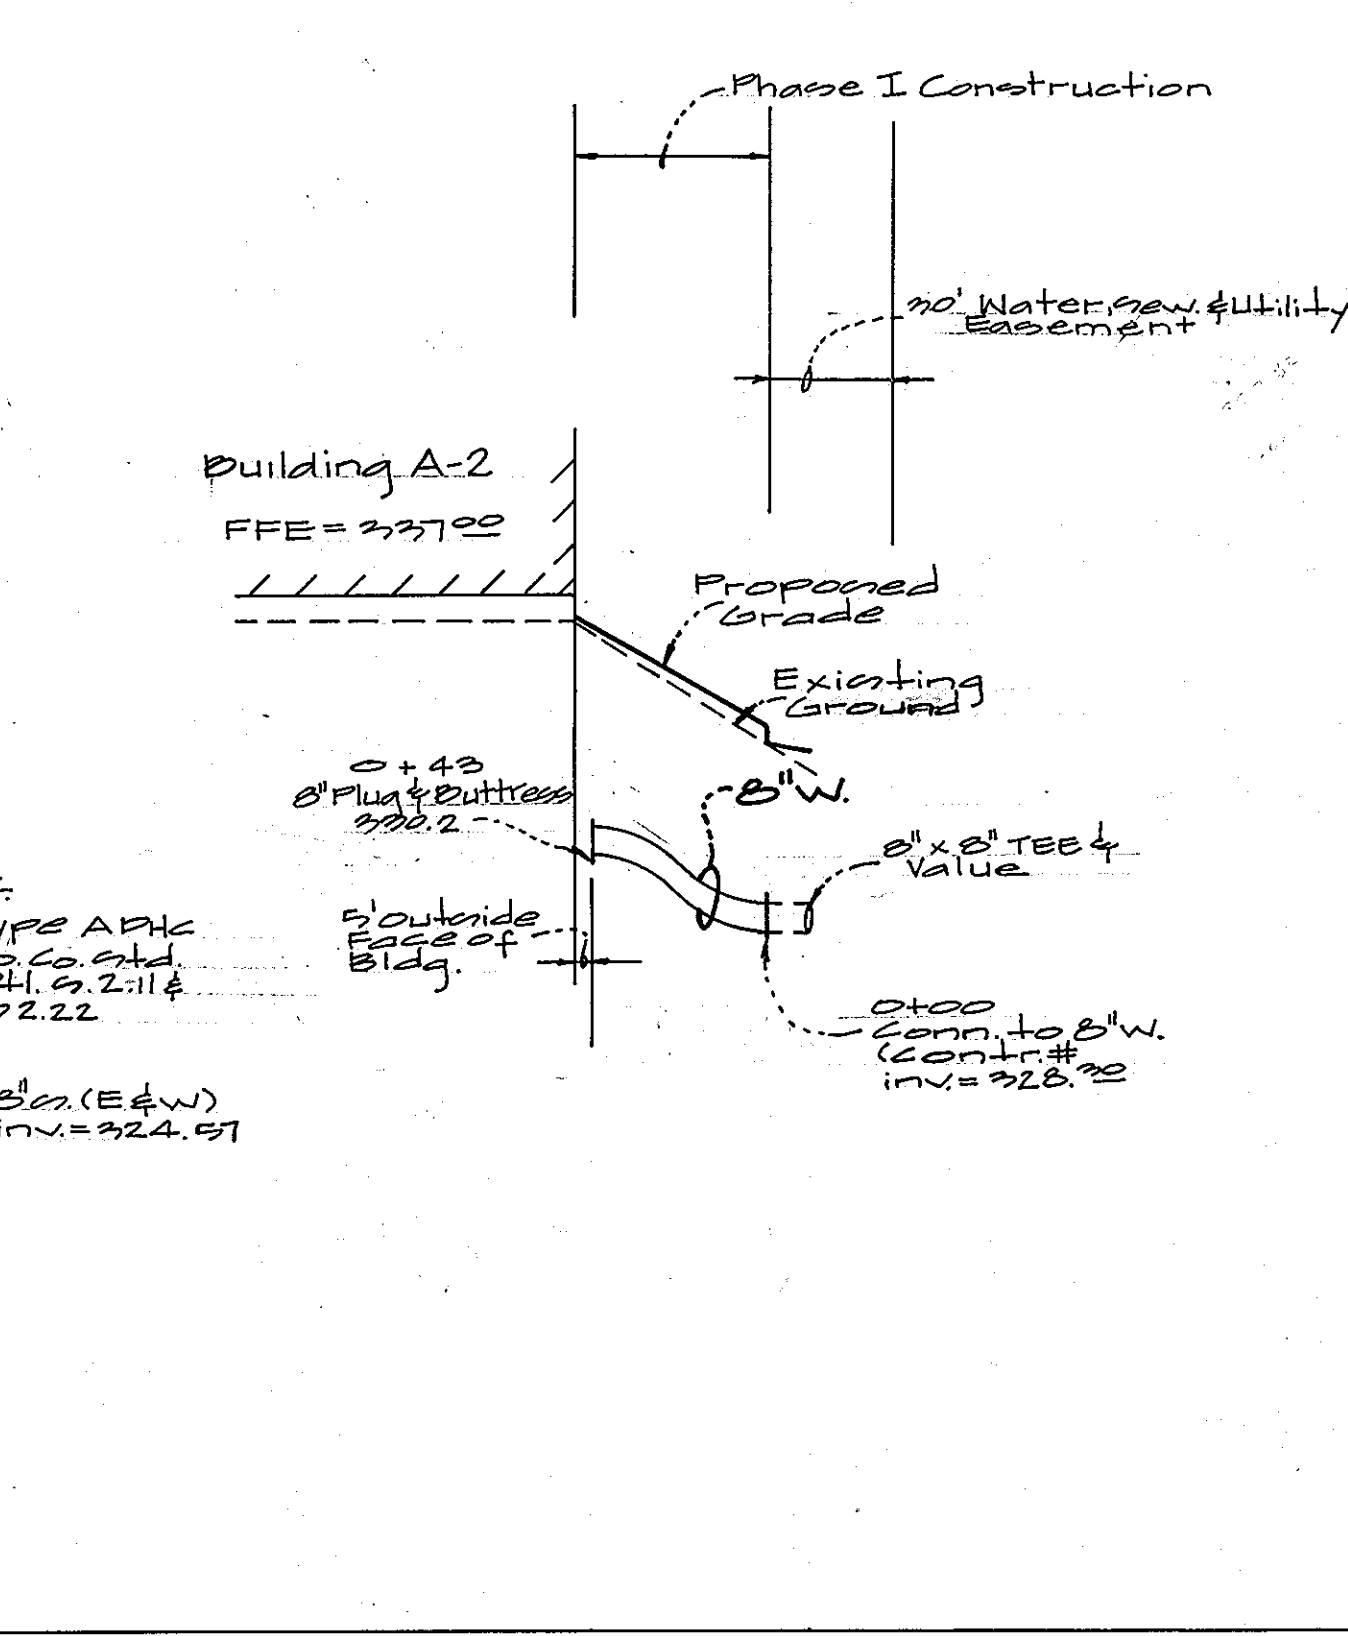 Phase I Construction
30' Water, Sew. & Utility
Easement
Building A-2
FFE = 337.00
Proposed
Grade
Existing
Ground
0 + 43
8" Plug & Buttress
330.2
8" W.
8" x 8" TEE &
Value
5' Outside
Face of
Bldg.
Type A DHC
Co. Std.
S. 2.11 &
2.22
0+00
Conn. to 8" W.
(Contr. #
inv. = 328.30
8" S. (E & W)
inv. = 324.57